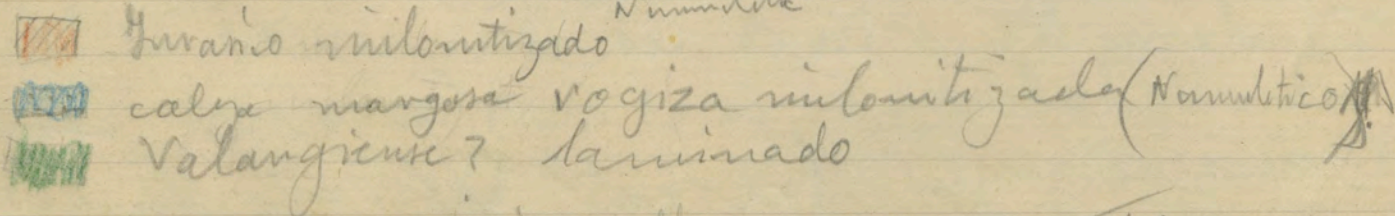 Jurasico milonitizado
caliza margosa rogiza milonitizada (Nomulitico)
Valangiense? laminado